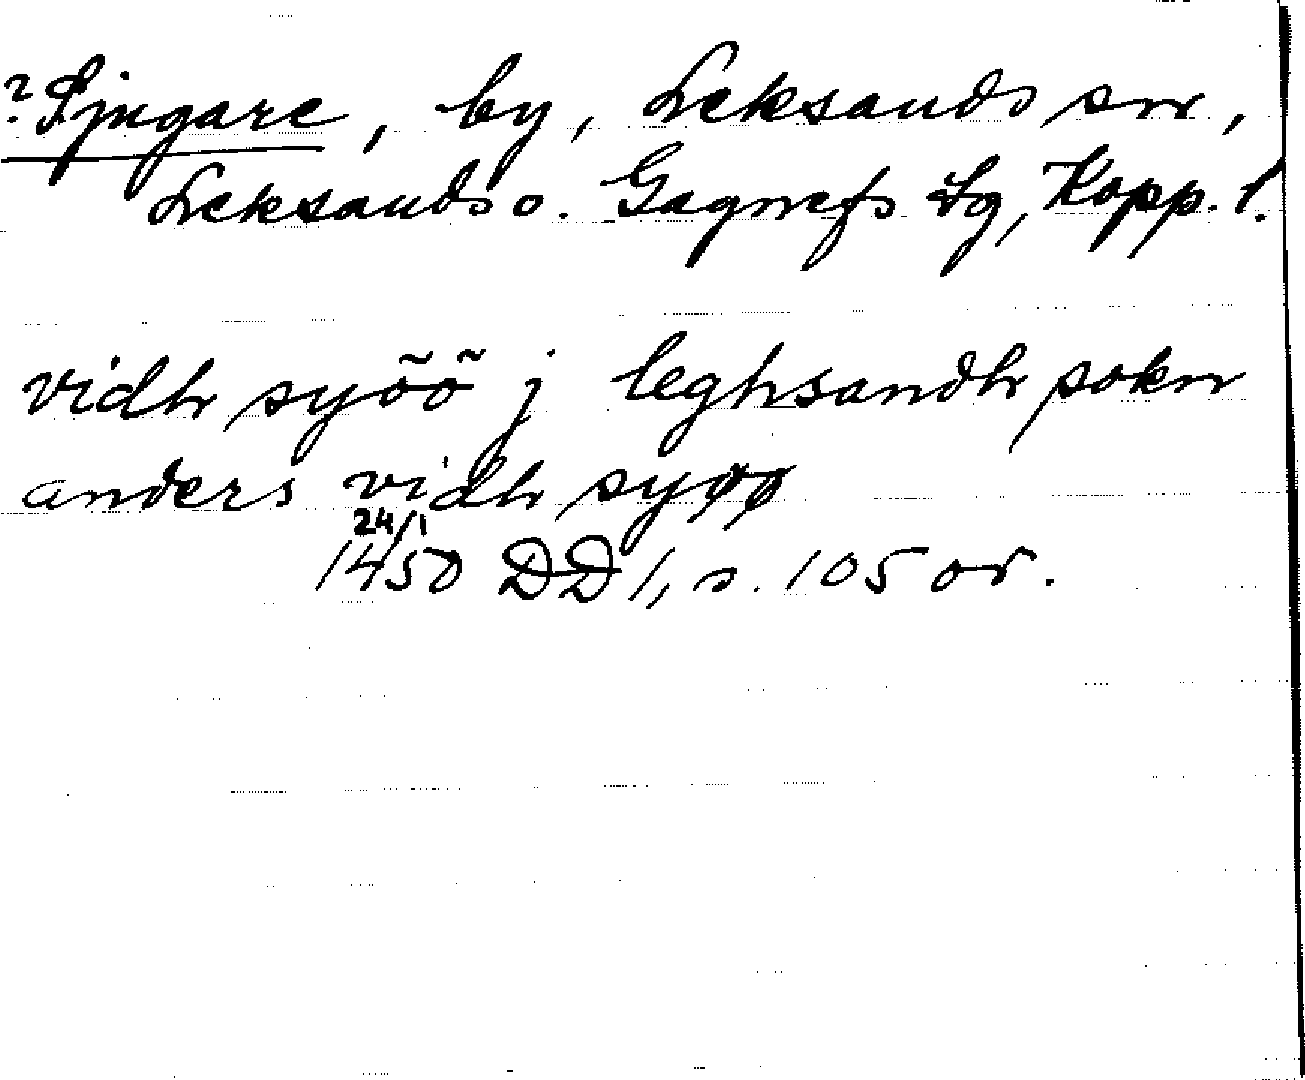 ? Sjugare, by, Leksands sn,
Leksands o. Gagnefs tg, Kopp. l.
vidh syõõ j leghsandh sokn
anders vidh syøø
24/1
1450 DD 1, s. 105 or.